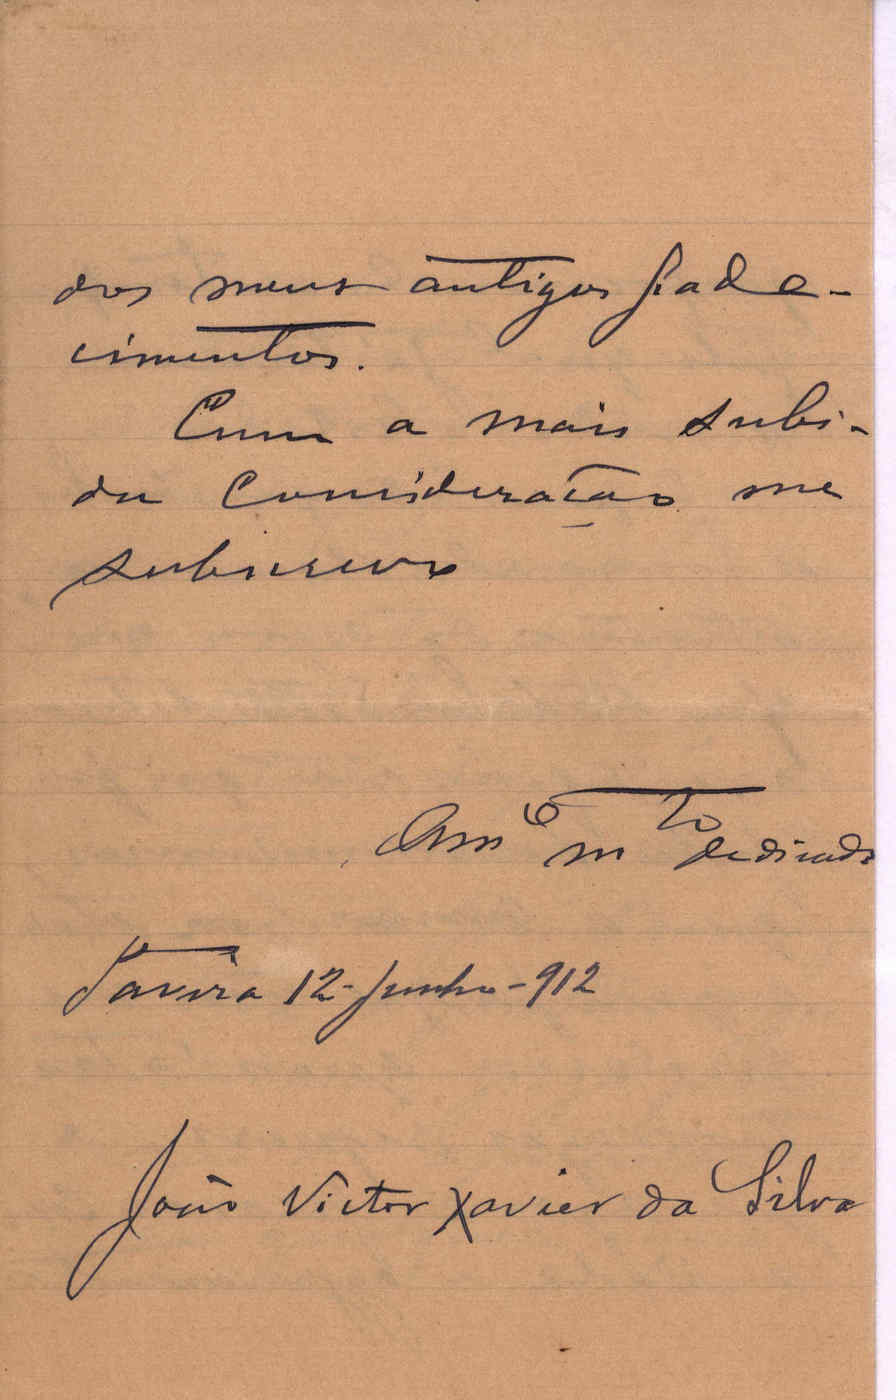 dos meus antigos pade-
cimentos.
Com a mais subi-
da consideração me
subscrevo
Amº mto dedicado
Tavira 12-Junho-912
João Victor Xavier da Silva